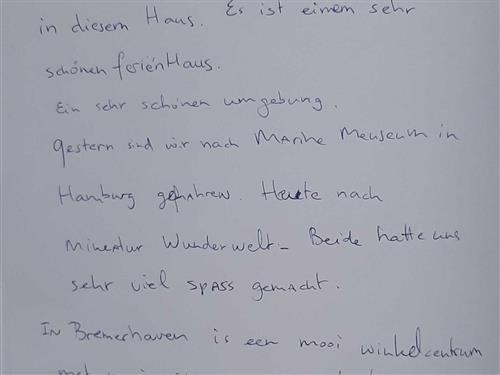 in diesem Haus. Es ist einem sehr
schönen ferienHaus.
Ein sehr schönen umgebung.
gestern sind wir nach Marine Menseum in
Hamburg gefahren. Heute nach
Mineatur Wunderwelt - Beide hatte uns
sehr viel spass gemacht.
In Bremerhaven is een mooi winkelcentrum